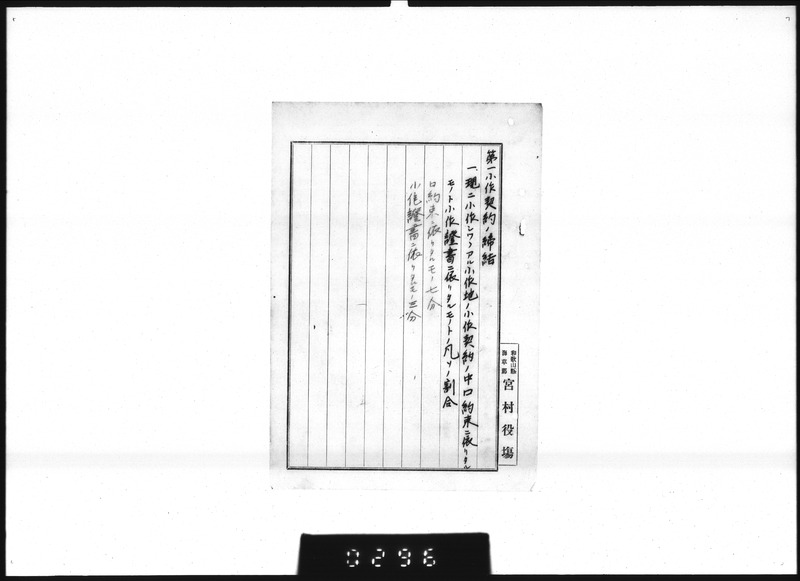 第一小作契約ノ締結
一、現ニ小作シツツアル小作地ノ小作契約ノ中口約束ニ依リタル
モノト小作證書ニ依リタルモノトノ凡ソノ割合
口約束ニ依リタルモノ七分
小作證書ニ依リタルモノ三分
和歌山縣
海草郡
宮村役場
0296